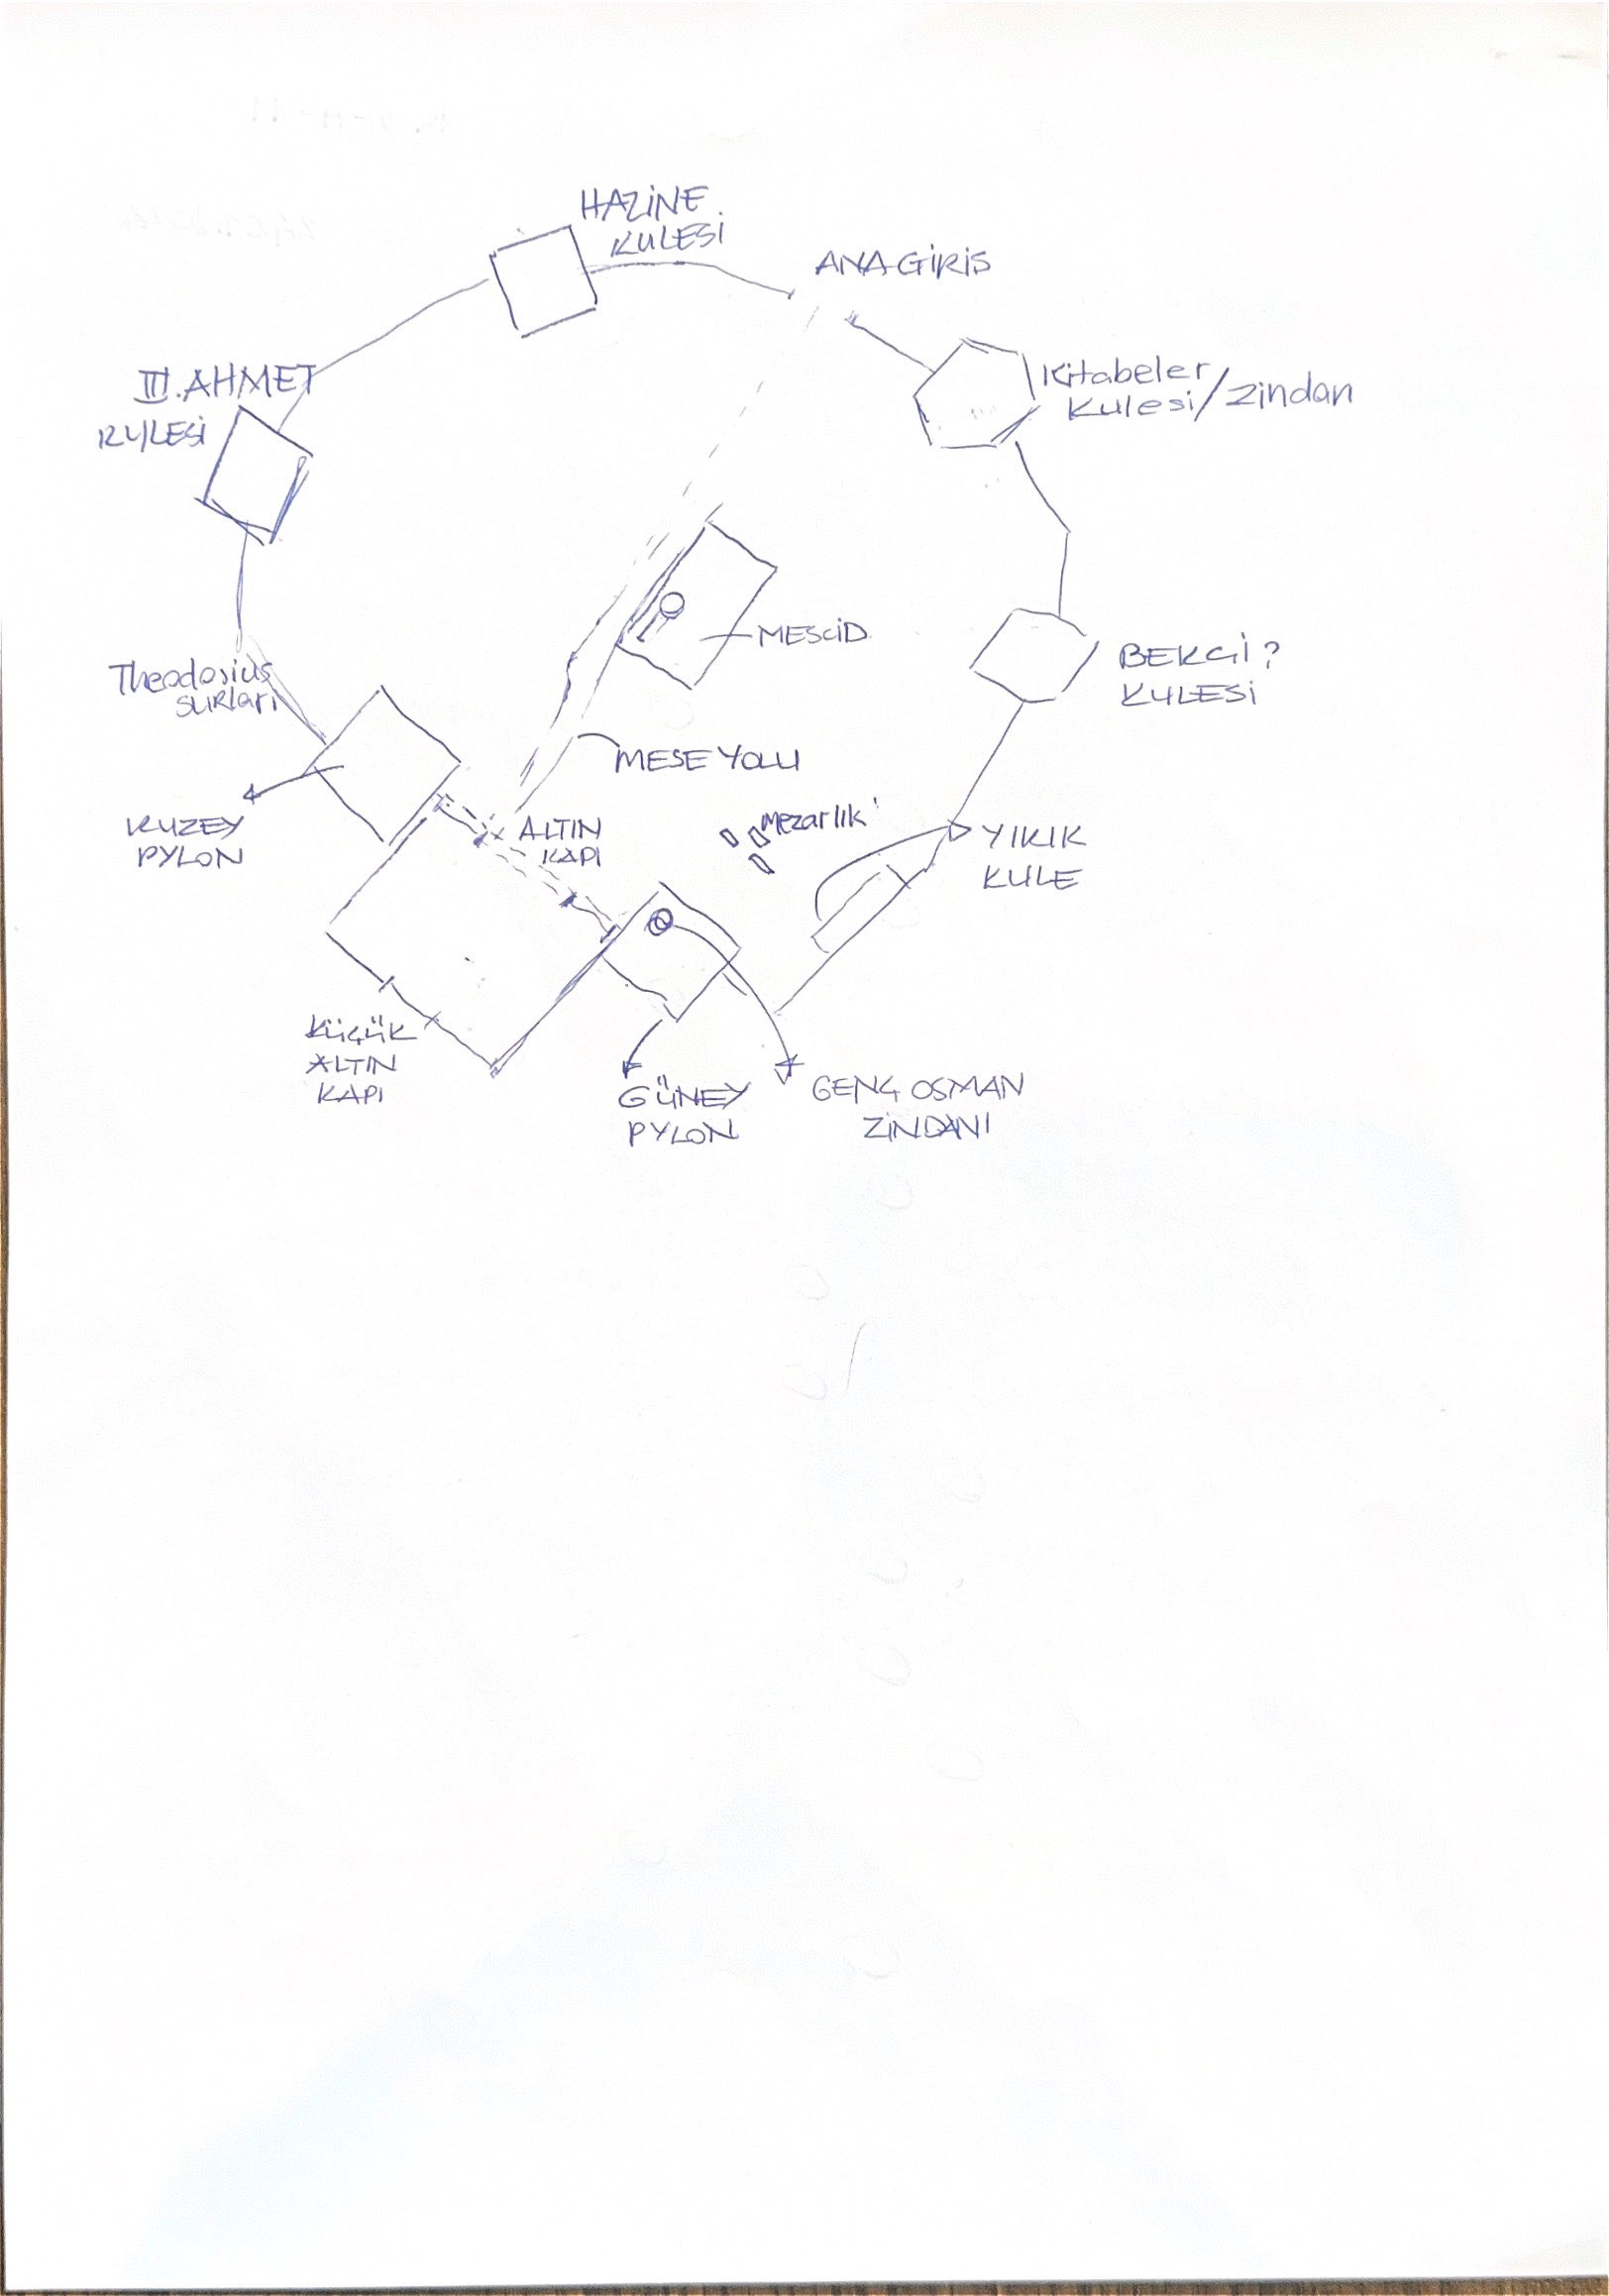 HAZİNE
KULESİ
ANA GİRİS
III. AHMET
KULESİ
Kitabeler
Kulesi/Zindan
MESCİD
BEKCİ?
KULESİ
Theodosius
SURları
MESE YOLU
KUZEY
PYLON
ALTIN
KAPI
Mezarlık
YIKIK
KULE
KÜÇÜK
ALTIN
KAPI
GÜNEY
PYLON
GENÇ OSMAN
ZİNDANI